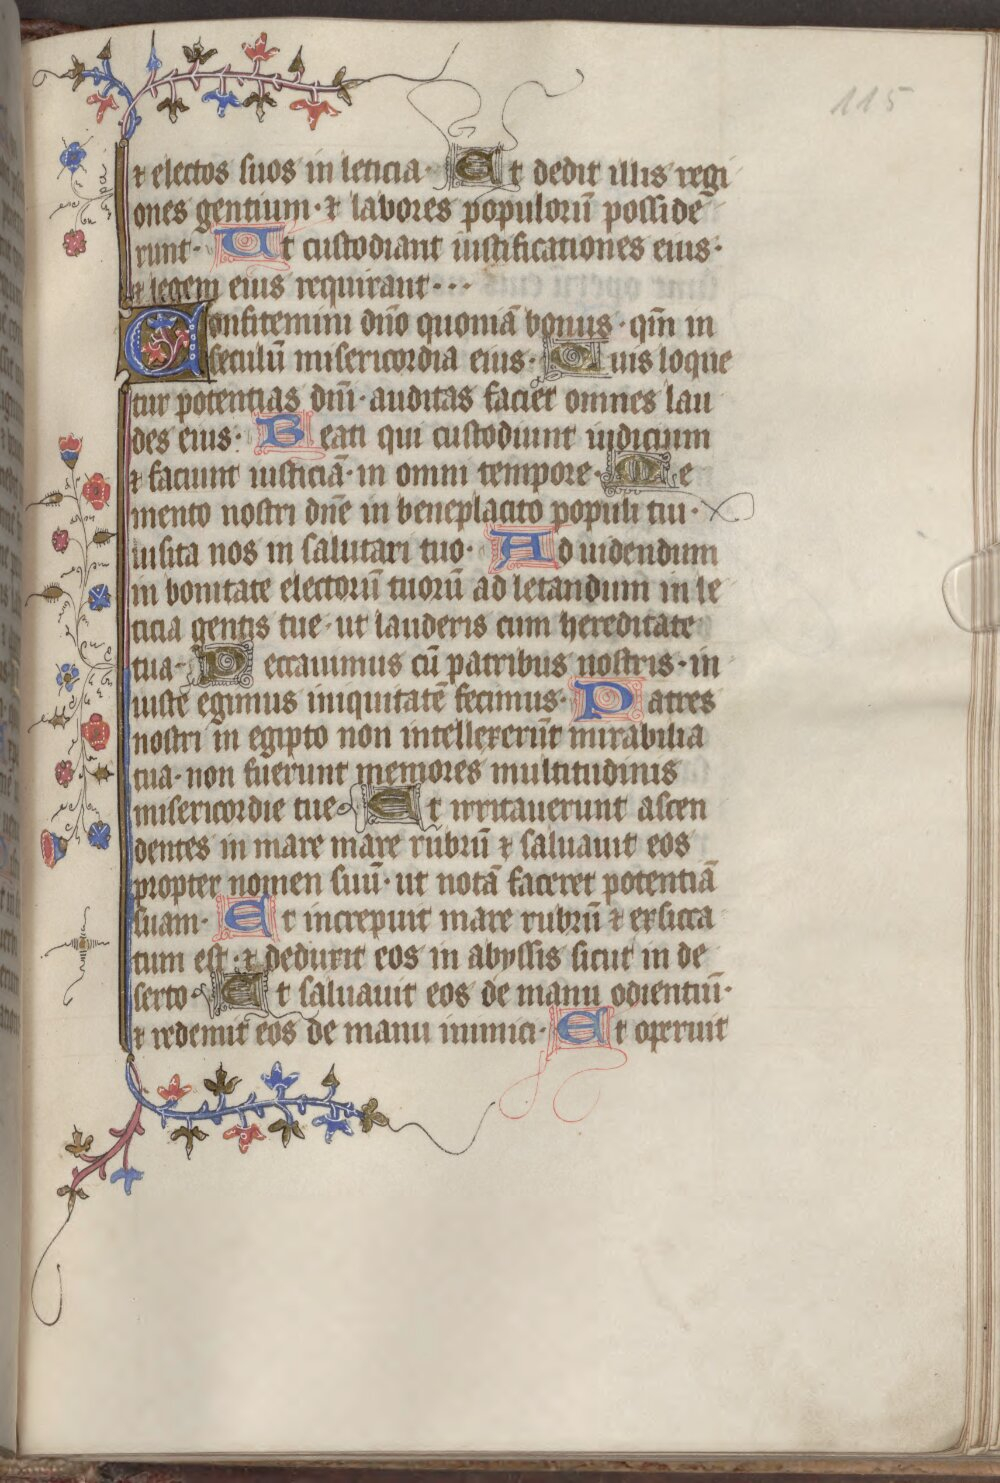 115
⁊ electos suos in leticia· Et dedit illis regi
ones gentium· ⁊ labores populorū posside
runt· Ut custodiant iustificationes eius·
⁊ legem eius requirant···
Confitemini dn̄o quoniā bonus· qm̄ in
seculū misericordia eius· Quis loque
tur potentias dn̄i· auditas faciet omnes lau
des eius· Beati qui custodiunt iudicium
⁊ faciunt iusticiā· in omni tempore· Me
mento nostri dn̄e in beneplacito populi tui·
uisita nos in salutari tuo· Ad uidendum
in bonitate electorū tuorū ad letandum in le
ticia gentis tue· ut lauderis cum hereditate
tua· Peccauimus cū patribus nostris· in
iuste egimus iniquitatē fecimus· Patres
nostri in egipto non intellexerūt mirabilia
tua· non fuerunt memores multitudinis
misericordie tue Et irritauerunt ascen
dentes in mare mare rubrū ⁊ saluauit eos
propter nomen suū· ut notā faceret potentiā
suam· Et increpuit mare rubrū ⁊ exsicca
tum est· ⁊ deduxit eos in abyssis sicut in de
serto· Et saluauit eos de manu odientiū·
⁊ redemit eos de manu inimici· Et operuit